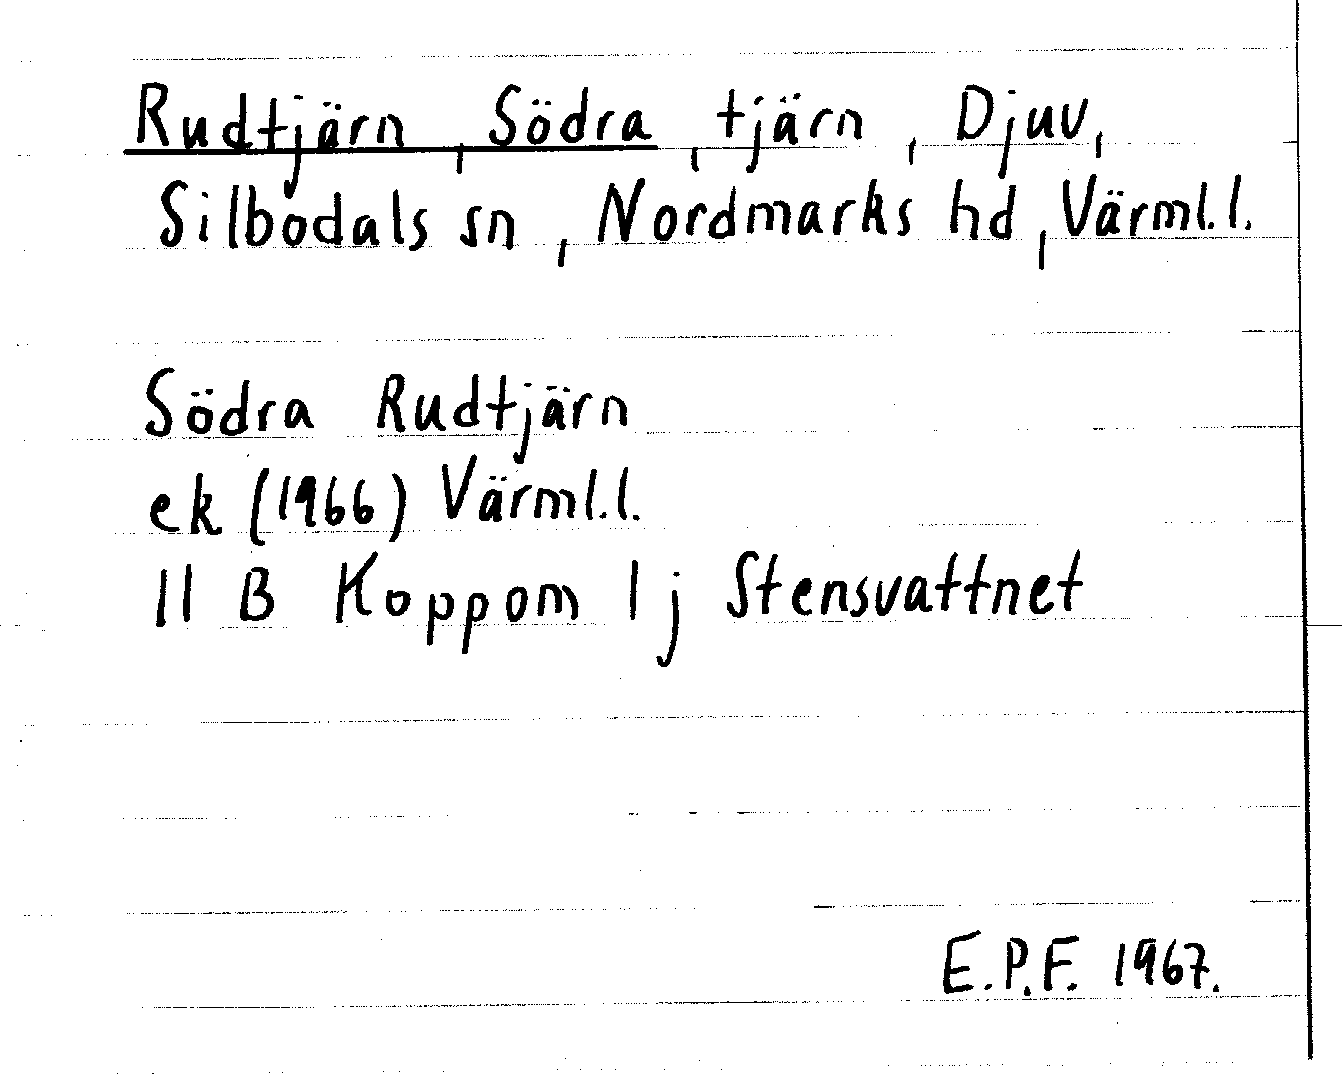 Rudtjärn, Södra, tjärn, Djuv,
Silbodals sn, Nordmarks hd, Värml.l.
Södra Rudtjärn
ek (1966) Värml.l.
11 B Koppom 1 j Stensvattnet
E.P.F. 1967.